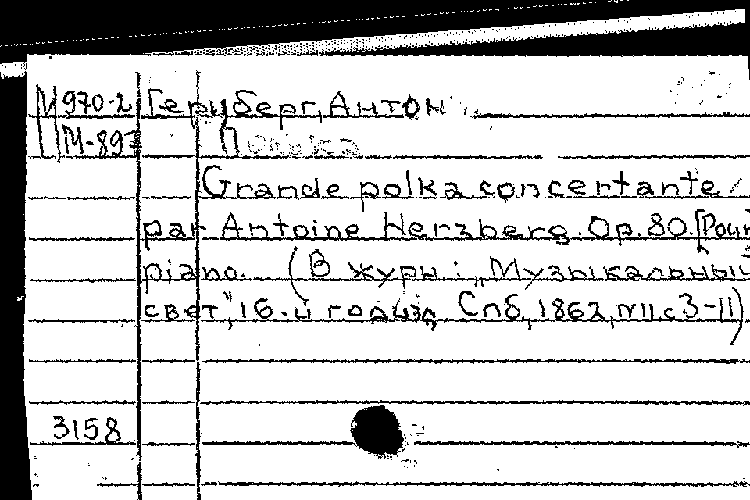 М970-2 Герцберг, Антон
М-897 Полька
Grande polka concertante
par Antoine Herzberg. Op. 80. [Pour
piano. (В журн: „Музыкальный
свет", 16-й год изд, Спб, 1862, №11, с 3-11)
3158